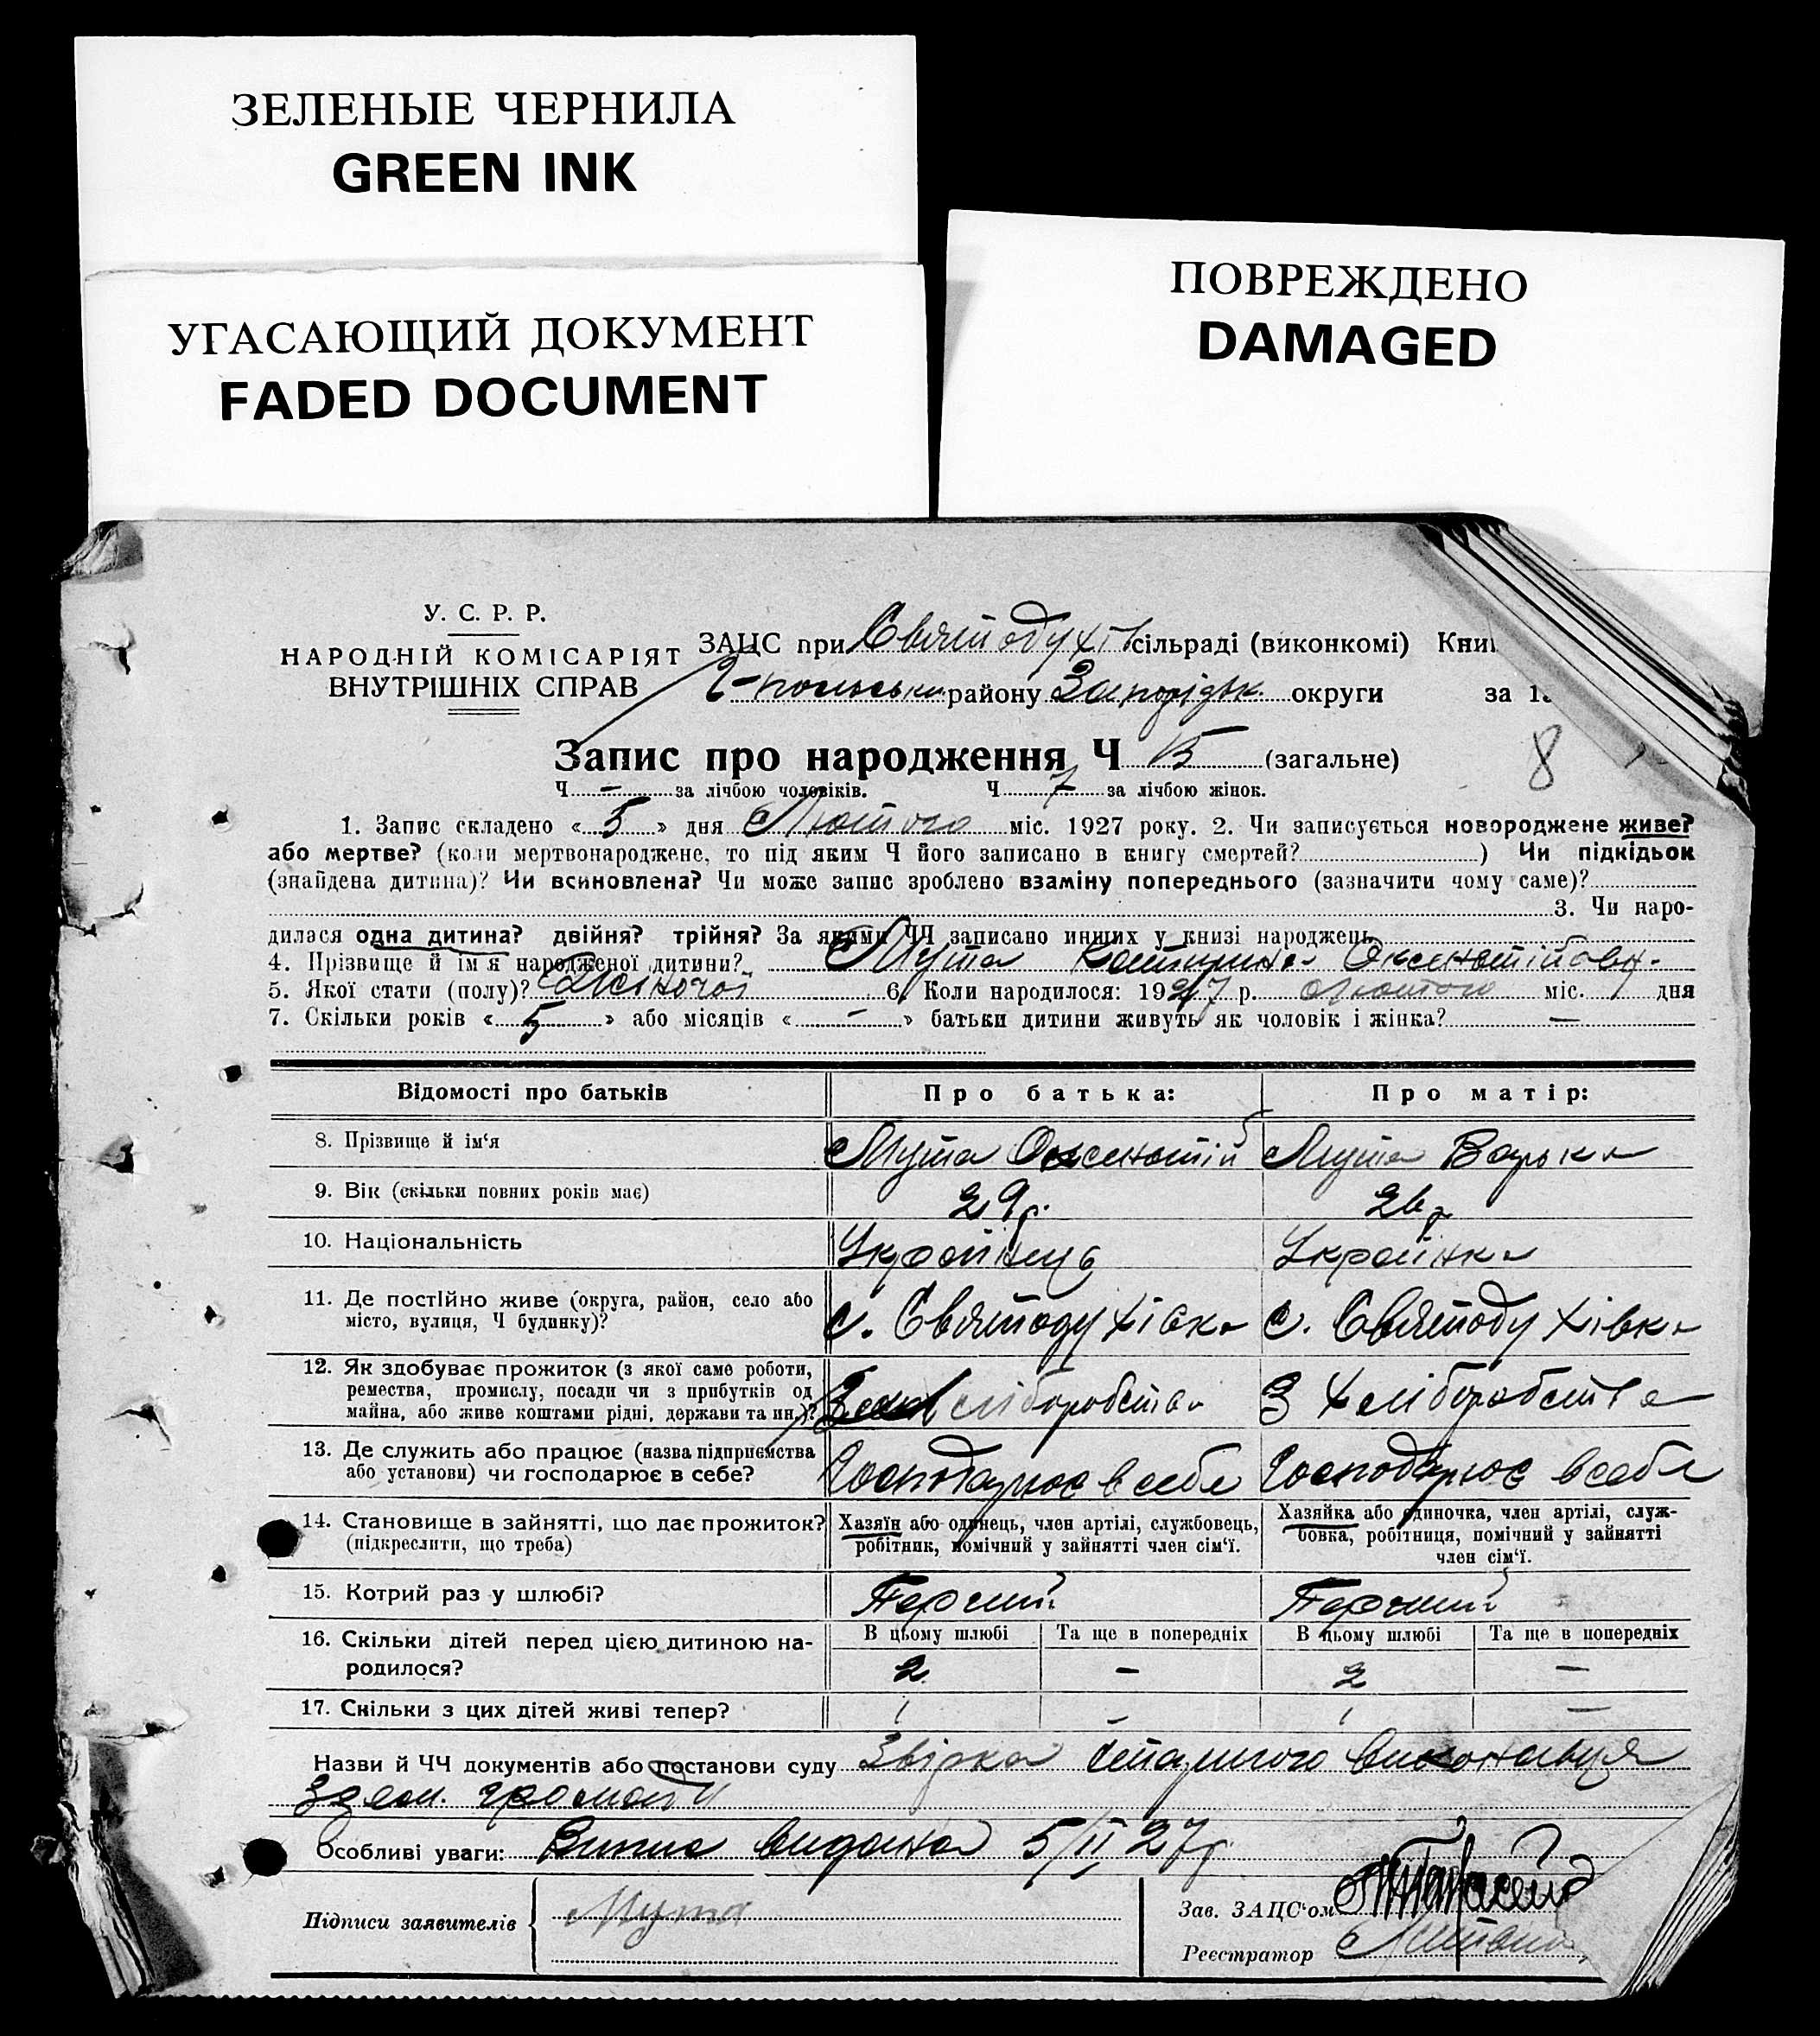 ЗЕЛЕНЫЕ ЧЕРНИЛА
GREEN INK
УГАСАЮЩИЙ ДОКУМЕНТ
FADED DOCUMENT
ПОВРЕЖДЕНО
DAMAGED
У. С. Р. Р.
НАРОДНІЙ КОМІСАРІЯТ
ВНУТРІШНІХ СПРАВ
ЗАЦС при Святодухів сільраді (виконкомі) Книг
району Запоріզьк. округи за 19
Запис про народження Ч 15 (загальне)
8
Ч – за лічбою чоловіків. Ч 7 за лічбою жінок.
1. Запис складено « 5 » дня Лютого міс. 1927 року. 2. Чи записується новороджене живе?
або мертве? (коли мертвонароджене, то під яким Ч його записано в книгу смертей? ) Чи підкідьок
(знайдена дитина)? Чи всиновлена? Чи може запис зроблено взаміну попереднього (зазначити чому саме)?
3. Чи наро-
дилася одна дитина? двійня? трійня? За якими ЧЧ записано инших у книзі народжень
4. Прізвище й ім'я народженої дитини? Мута Катерина Оксентійовн.
5. Якої стати (полу)? Жіночої 6. Коли народилося: 1927 р. Лютого міс. дня
7. Скільки років « 5 » або місяців « – » батьки дитини живуть як чоловік і жінка? –
Відомості про батьків Про батька: Про матір:
8. Прізвище й ім'я Мута Оксентій Мута Варька
9. Вік (скільки повних років має) 29 р. 26 р.
10. Національність Українець Українка
11. Де постійно живе (округа, район, село або
місто, вулиця, Ч будинку)? с. Святодухівка с. Святодухівка
12. Як здобуває прожиток (з якої саме роботи,
ремества, промислу, посади чи з прибутків од
майна, або живе коштами рідні, держави та ин.)? хліборобства З хліборобства
13. Де служить або працює (назва підприємства
або установи) чи господарює в себе? Господарює в себе Господарює в себе
14. Становище в зайнятті, що дає прожиток?
(підкреслити, що треба)
Хазяїн або одинець, член артілі, службовець,
робітник, помічний у зайнятті член сім'ї.
Хазяйка або одиночка, член артілі, служ-
бовка, робітниця, помічний у зайнятті
член сім'ї.
15. Котрий раз у шлюбі? Перший Перший
16. Скільки дітей перед цією дитиною на-
родилося?
В цьому шлюбі Та ще в попередніх В цьому шлюбі Та ще в попередніх
2 – 2 –
17. Скільки з цих дітей живі тепер? 1 – 1 –
Назви й ЧЧ документів або постанови суду Звірка Старшого виконавця
зем. громади
Особливі уваги: Випис видана 5/II 27 р
Підписи заявителів Мута
Зав. ЗАЦС'ом
Реєстратор